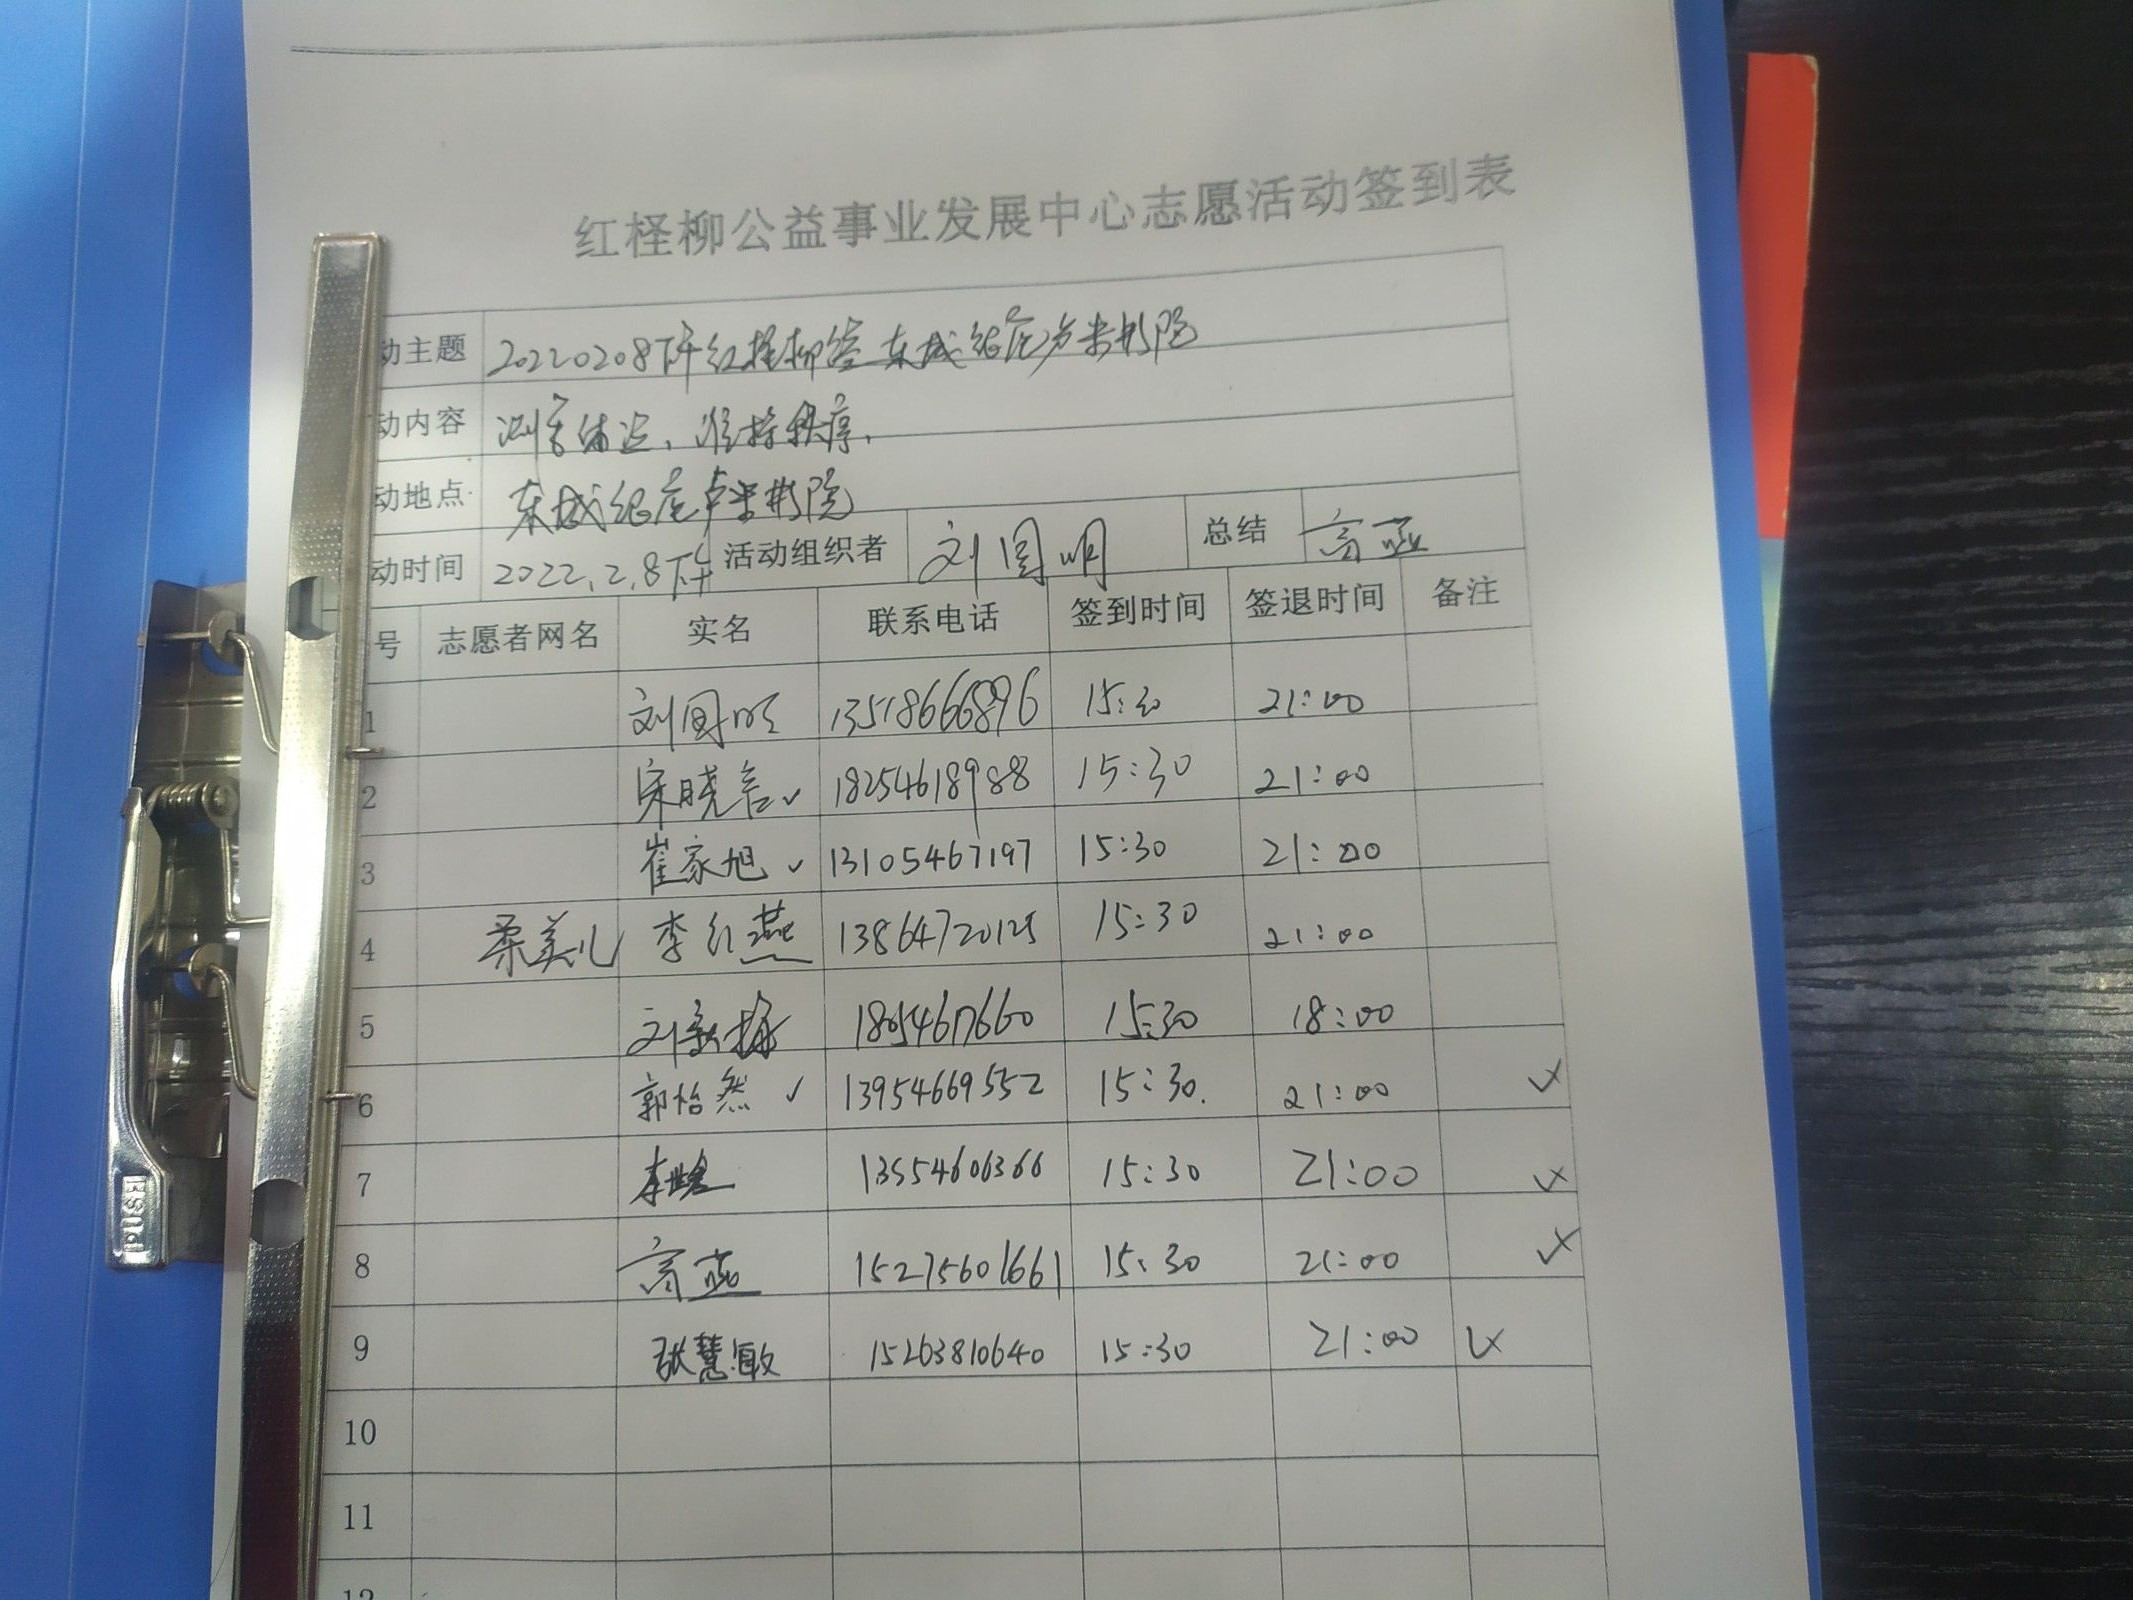 红柽柳公益事业发展中心志愿活动签到表
动主题 20220208下午红柽柳 东城银座 影院
动内容 测量体温、维持秩序.
动地点 东城银座卢米影院
动时间 2022.2.8下午 活动组织者 刘国明 总结 高燕
号 志愿者网名 实名 联系电话 签到时间 签退时间 备注
1 刘国明 13518666896 15:30 21:00
2 宋晓 ✓ 18254618988 15:30 21:00
3 崔家旭 ✓ 13105467197 15:30 21:00
4 柔美儿 李红燕 13864720125 15:30 21:00
5 刘 15:30 18:00
6 郭怡然 ✓ 13954669552 15:30. 21:00 ✓
7 李 13554606366 15:30 21:00 ✓
8 高燕 15275601661 15:30 21:00 ✓
9 张慧敏 15263810640 15:30 21:00 ✓
10
11
12
PUSH